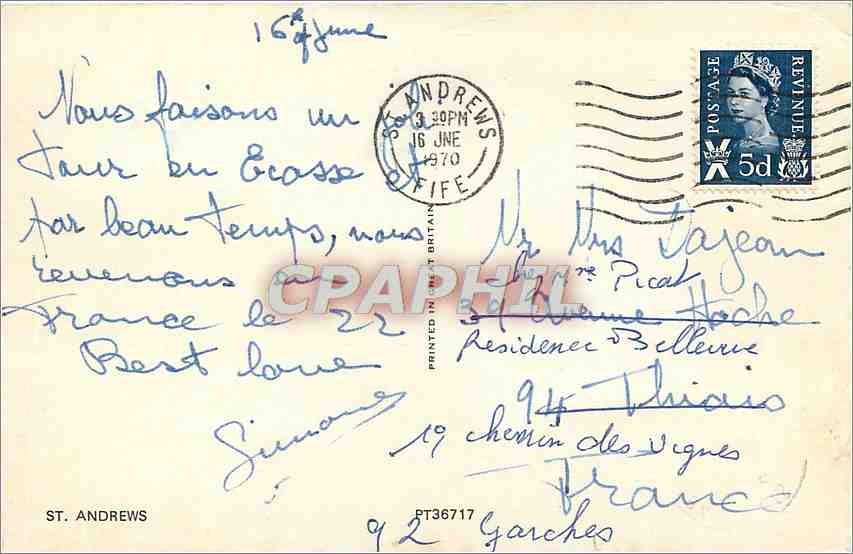 16 of June
Nous faisons un joli
tour en Ecosse et
par beau temps, nous
revenons en
France le 22
Best love
Simone
ST. ANDREWS
3 30PM
16 JNE
1970
FIFE
POSTAGE
REVENUE
5d
PRINTED IN GREAT BRITAIN
Mr Mrs Dajean
chez Mme Picat
Avenue Hoche
Résidence Bellevue
94 Thiais
19 chemin des vignes
France
92 Garches
ST. ANDREWS
PT36717
CPAPHIL